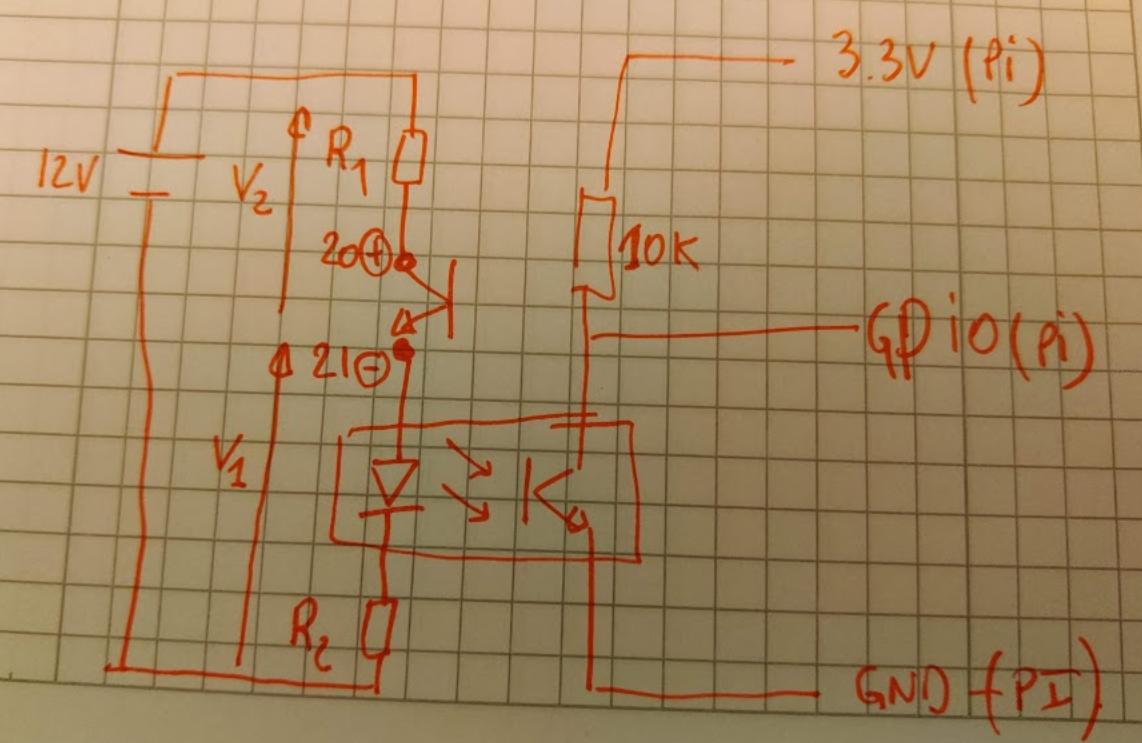 3.3V (Pi)
12V
V2
R1
20⊕
10K
GPiO (Pi)
21⊖
V1
R2
GND (PI)